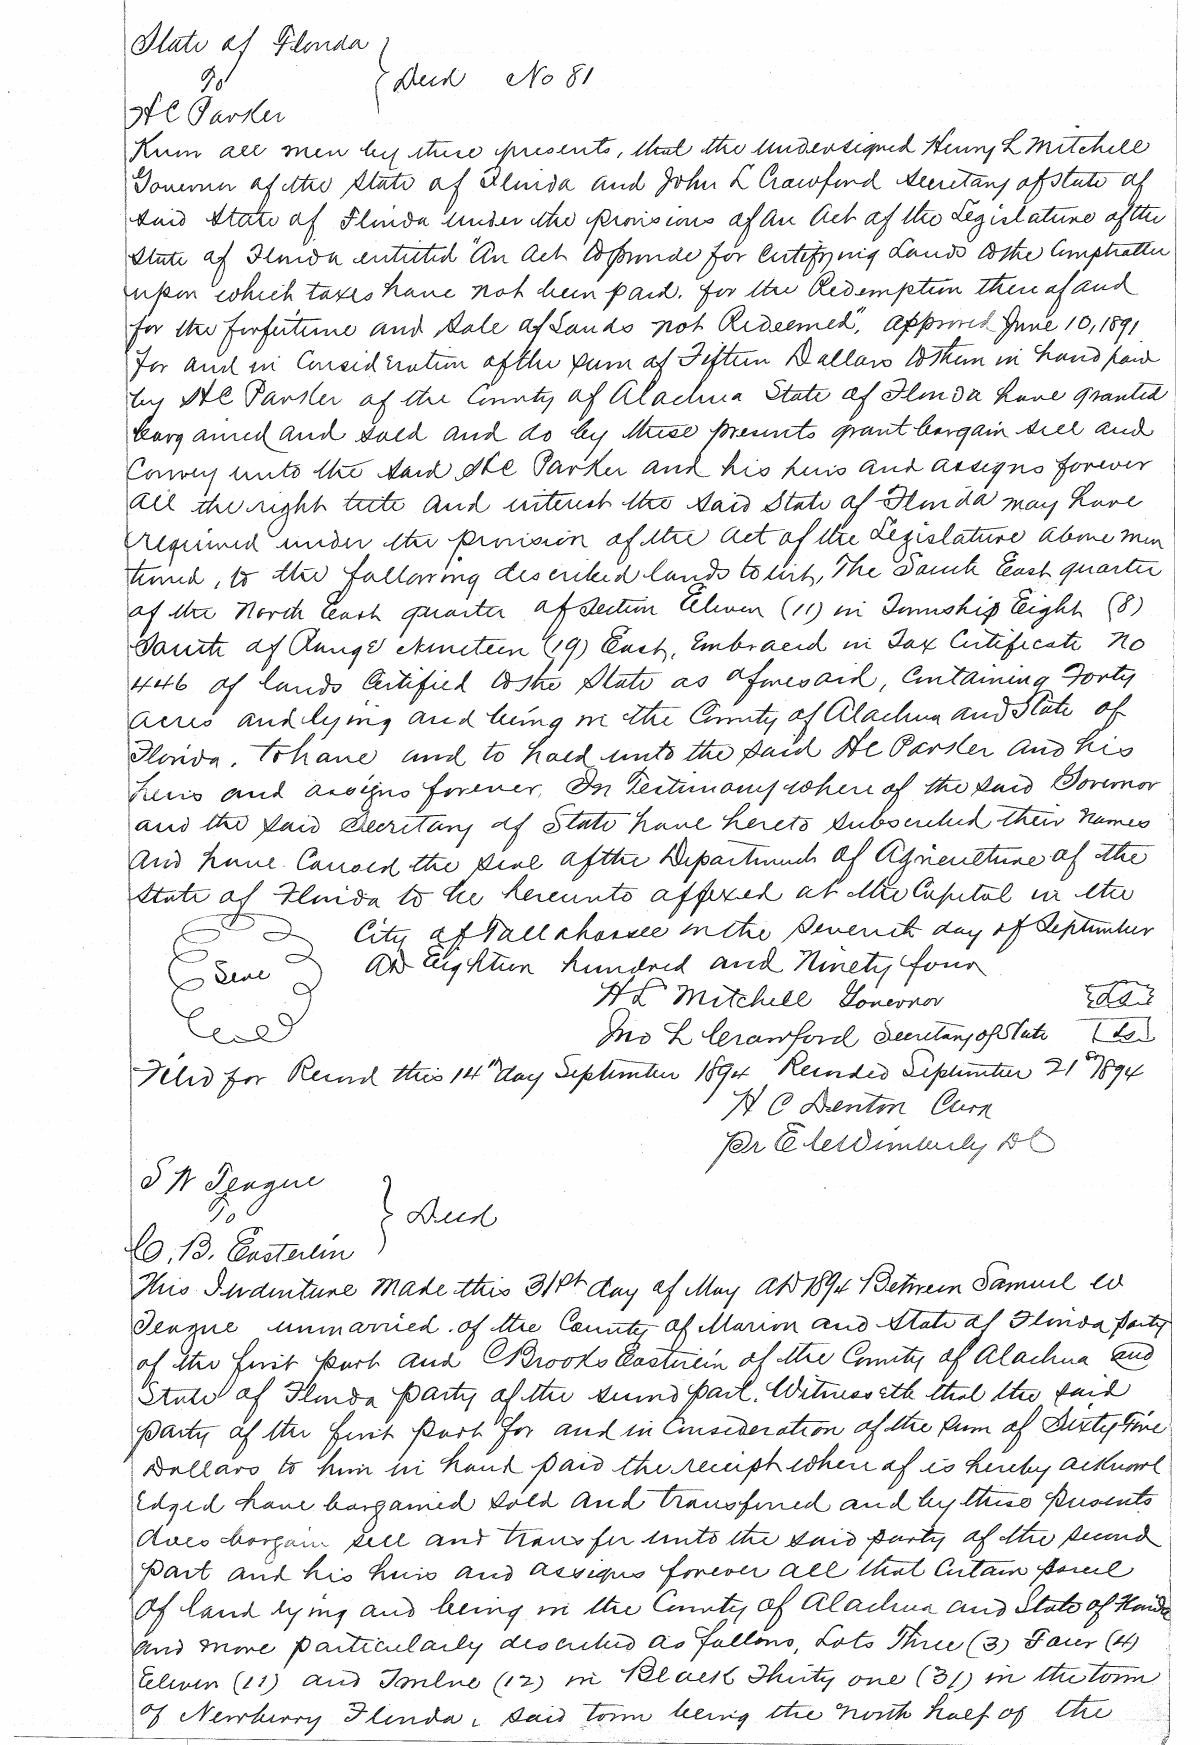 State of Florida
To } Deed No 81
H C Parker
Know all men by these presents, that the undersigned Henry L Mitchell
Governor of the State of Florida and John L Crawford Secretary of State of
said State of Florida under the provisions of an Act of the Legislature of the
State of Florida entitled "An Act to provide for Certifying Lands to the Comptroller
upon which taxes have not been paid. for the Redemption thereof and
for the forfeiture and Sale of Lands not Redeemed", approved June 10, 1891
For and in Consideration of the sum of Fifteen Dollars to them in hand paid
by H C Parker of the County of Alachua State of Florida have granted
bargained and sold and do by these presents grant bargain sell and
Convey unto the said H C Parker and his heirs and assigns forever
all the right title and interest the said State of Florida may have
required under the provision of the Act of the Legislature above men
tioned, to the following described lands to wit, The South East quarter
of the North East quarter of Section Eleven (11) in Township Eight (8)
South of Range Nineteen (19) East, Embraced in Tax Certificate No
446 of lands Certified to the State as aforesaid, Containing Forty
acres and lying and being in the County of Alachua and State of
Florida. To have and to hold unto the said H C Parker and his
heirs and assigns forever. In Testimony where of the said Governor
and the said Secretary of State have hereto subscribed their names
and have Caused the seal of the Department of Agriculture of the
State of Florida to be hereunto affixed at the Capital in the
City of Tallahassee on the Seventh day of September
AD Eighteen hundred and Ninety four
Seal
H L Mitchell Governor {LS}
Jno L Crawford Secretary of State [LS]
Filed for Record this 14th day September 1894 Recorded September 21st 1894
H C Denton Clerk
Pr E C Wimberly DC
S W Teague
To } Deed
C. B. Easterlin
This Indenture Made this 31st day of May AD 1894 Between Samuel W
Teague unmarried of the County of Marion and State of Florida party
of the first part and C Brooks Easterlin of the County of Alachua and
State of Florida party of the second part. Witnesseth that the said
party of the first part for and in Consideration of the sum of Sixty Five
Dollars to him in hand paid the receipt where of is hereby acknowl
edged have bargained sold and transferred and by these presents
does bargain sell and transfer unto the said party of the second
part and his heirs and assigns forever all that Certain parcel
of land lying and being in the County of Alachua and State of Florida
and more particularly described as follows, Lots Three (3) Four (4)
Eleven (11) and Twelve (12) in Block Thirty one (31) in the town
of Newberry Florida, said town being the north half of the